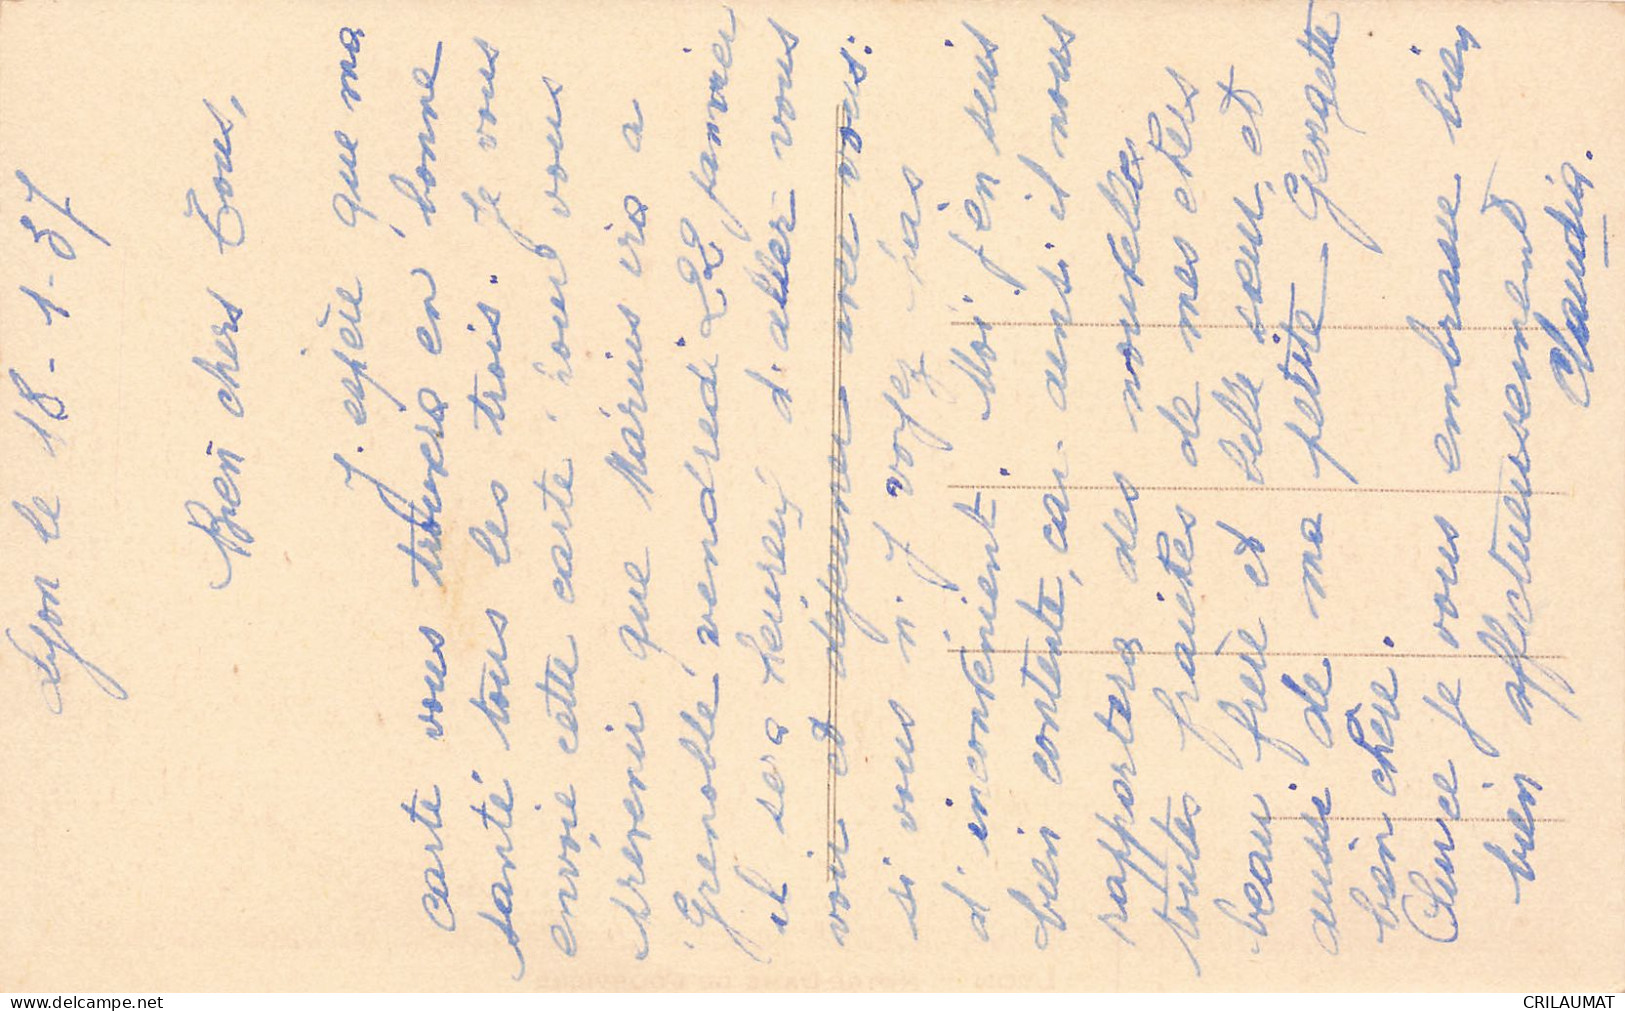 Lyon le 18-1-37
Bien chers Tous,
J. espère que ma
carte vous trouvera en bonne
santé tous les trois. Je vous
envoie cette carte pour vous
prevenir que Marius ira a
Grenoble vendredi 22 janvier
il sera heureux d. aller vous
voir et déjeuner avec vous.
si vous n. y voyez pas
d. inconvénient. Moi j'en suis
bien contente, car ainsi il nous
rapportera des nouvelles
toutes fraiches de mes chers
beau frère et belle sœur, et
aussi de ma petite Georgette
bien chère.
je vous embrasse bien
bien affectueusement
Claudia.
delcampe.net
CRILAUMAT